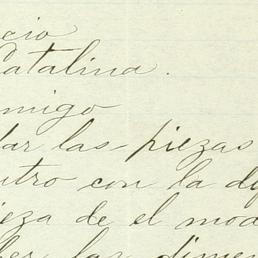 cio
Catalina.
migo
dar las piezas
utro con la di
ieza de el mod
ber las dimen